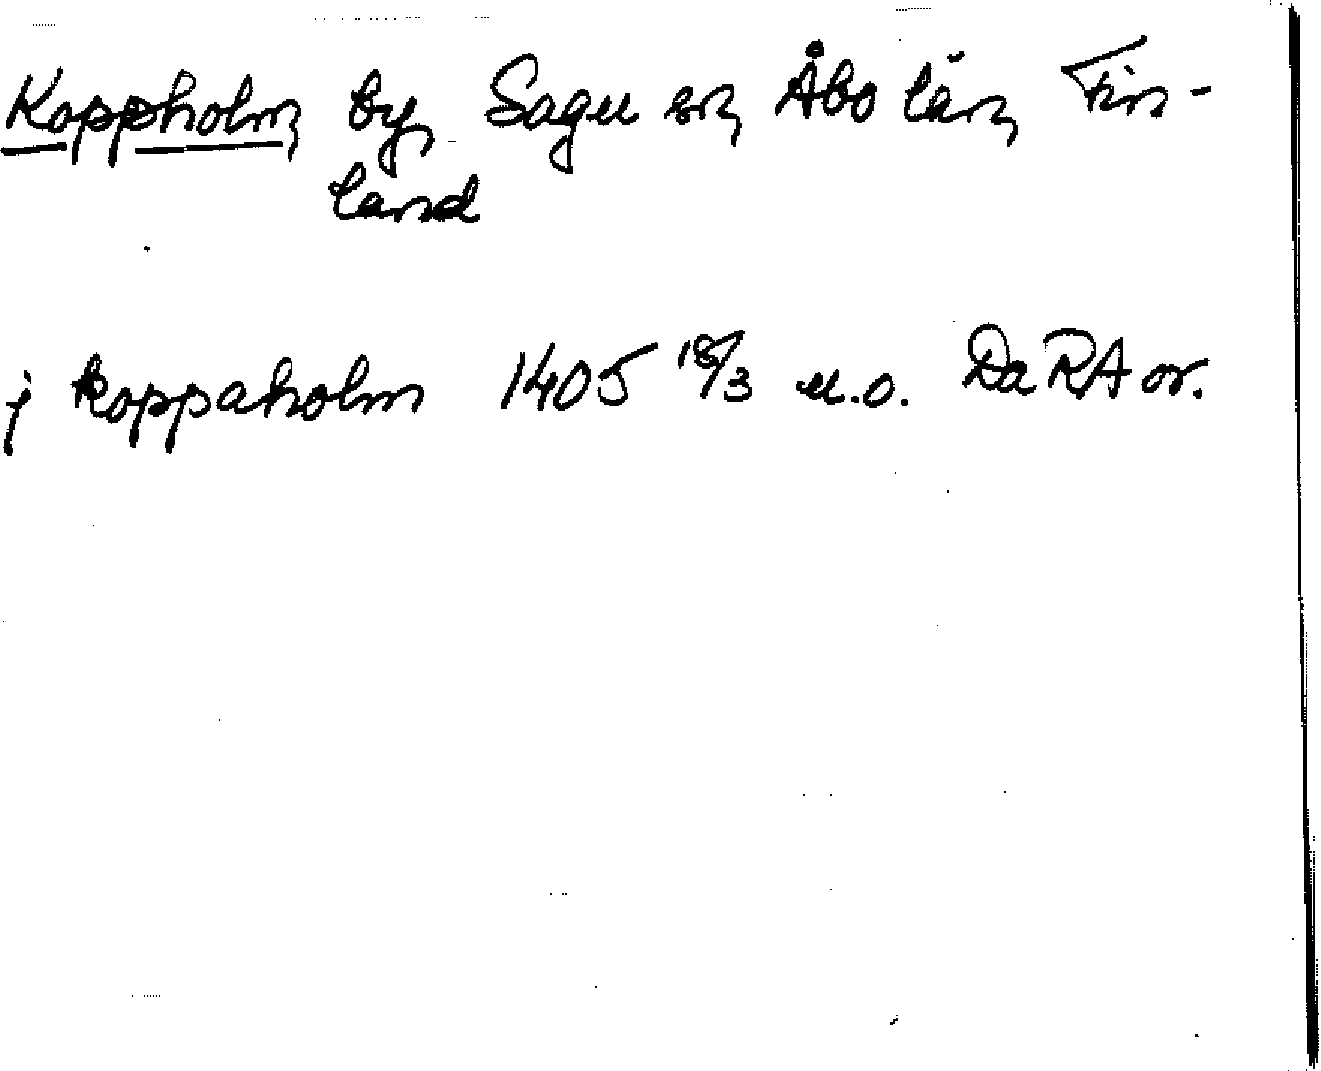 Koppholm, by, Sagu sn, Åbo län, Fin-
land
j koppaholm 1405 18/3 u.o. Da RA or.